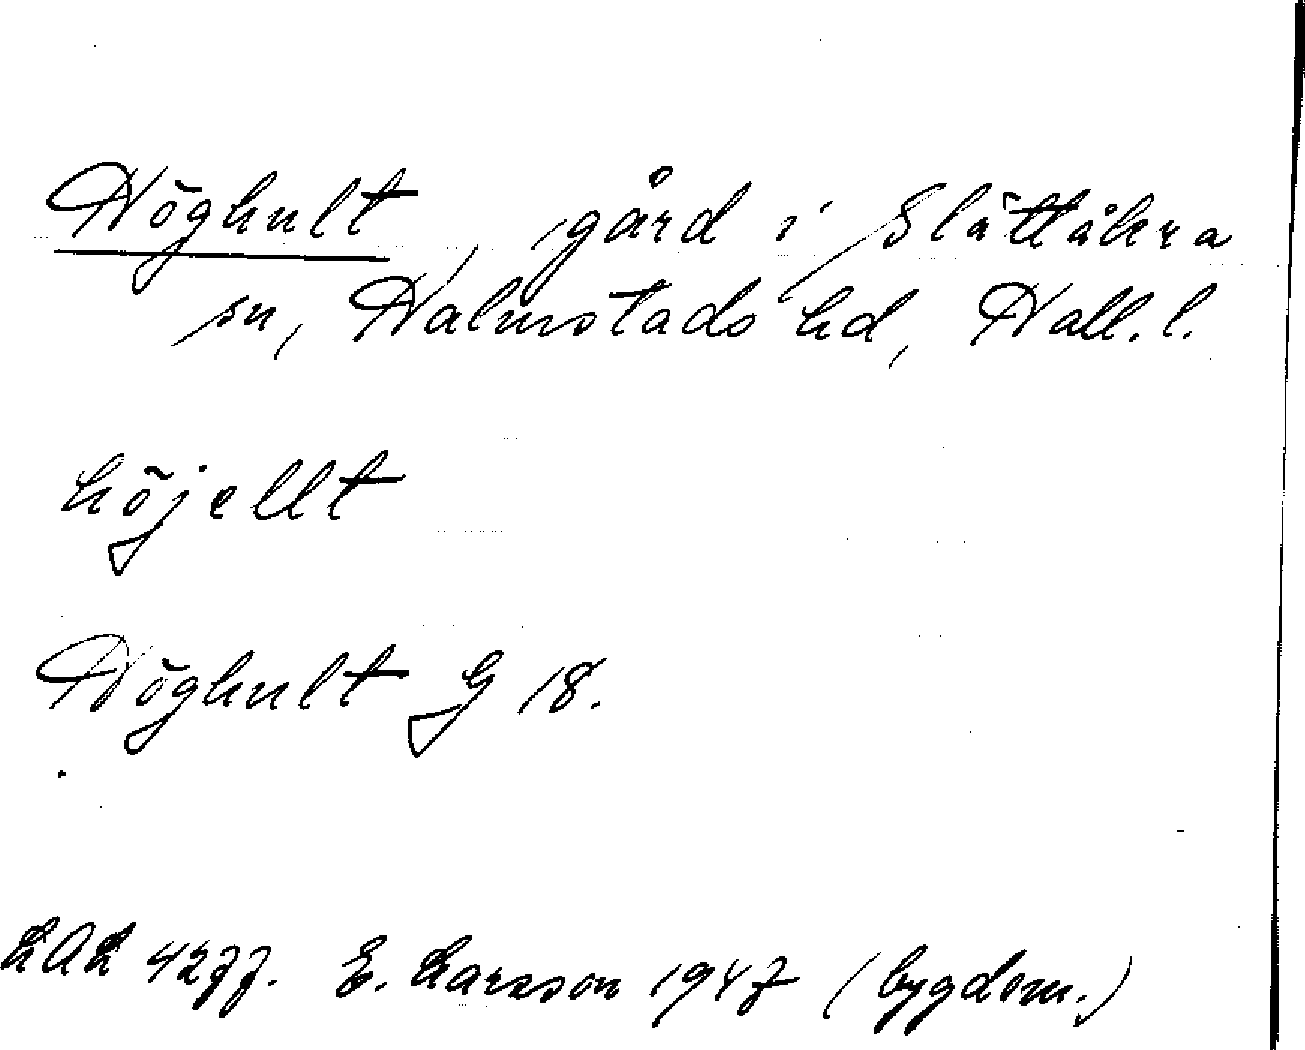 Höghult, gård i Slättåkra
sn, Halmstads hd, Hall. l.
höjellt
Höghult G 18.
LAL 4277. E. Larsson 1947 (bygdem.)